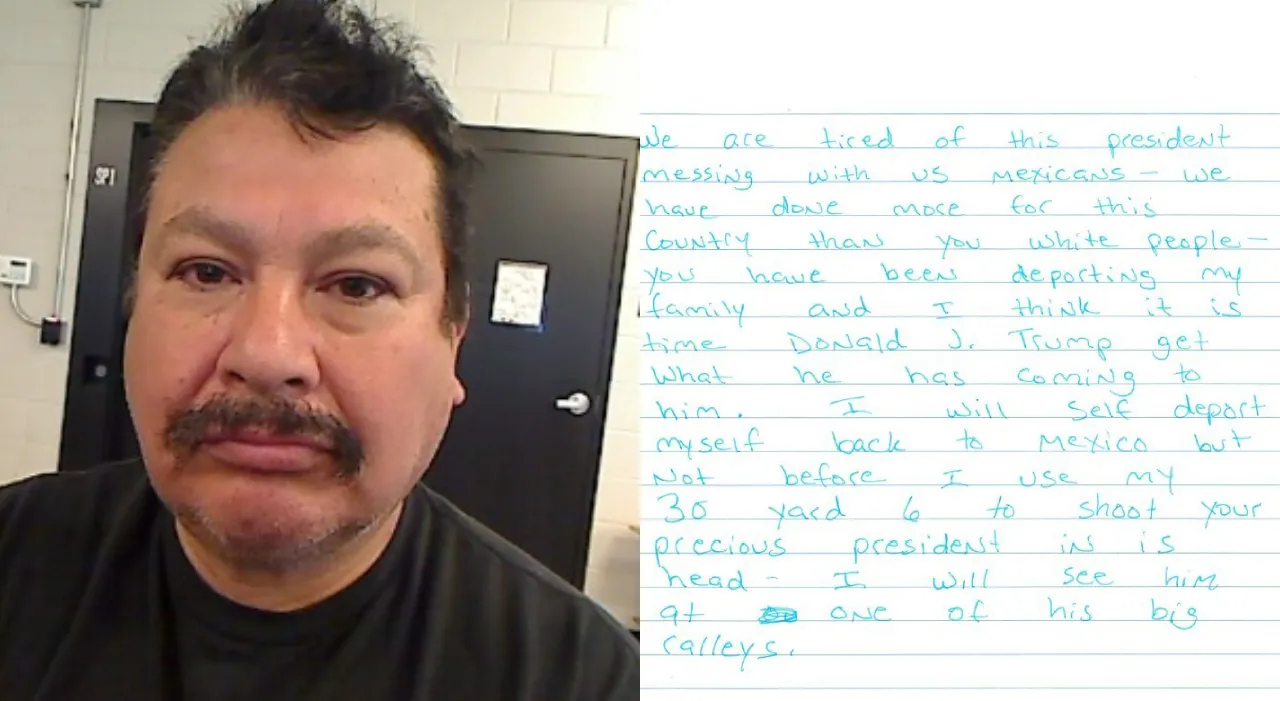 SPI
We are tired of this president
messing with us mexicans – we
have done more for this
Country than you white people –
you have been deporting my
family and I think it is
time Donald J. Trump get
What he has coming to
him. I will self deport
myself back to mexico but
not before I use my
30 yard 6 to shoot your
precious president in is
head – I will see him
at one of his big
ralleys.